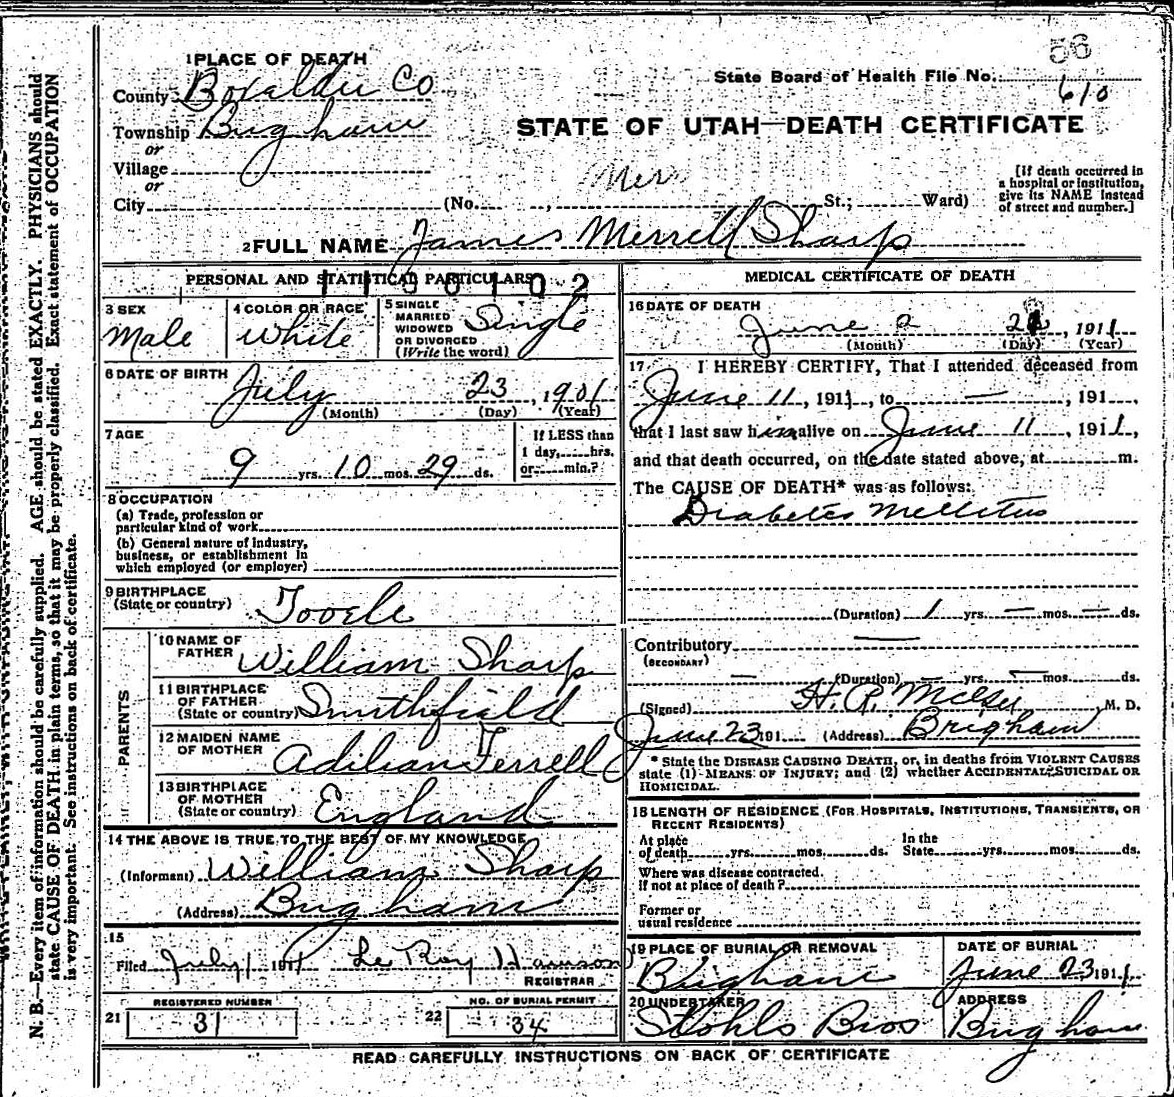 56
1 PLACE OF DEATH
State Board of Health File No. 610
County Boxelder Co
Township Brigham
STATE OF UTAH—DEATH CERTIFICATE
or
Village
or
Merr
[If death occurred in
a hospital or institution,
give its NAME instead
of street and number.]
City (No. , St.; Ward)
2 FULL NAME James Merrell Sharp
PERSONAL AND STATISTICAL PARTICULARS
1190102
3 SEX
Male
4 COLOR OR RACE
White
5 SINGLE
MARRIED
WIDOWED
OR DIVORCED
(Write the word)
Single
6 DATE OF BIRTH
July 23, 1901
(Month) (Day) (Year)
7 AGE
9 yrs. 10 mos. 29 ds.
If LESS than
1 day, hrs.
or min.?
8 OCCUPATION
(a) Trade, profession or
particular kind of work
(b) General nature of industry,
business, or establishment in
which employed (or employer)
9 BIRTHPLACE
(State or country) Tooele
PARENTS
10 NAME OF
FATHER William Sharp
11 BIRTHPLACE
OF FATHER
(State or country) Smithfield
12 MAIDEN NAME
OF MOTHER Terrell
13 BIRTHPLACE
OF MOTHER
(State or country) England
14 THE ABOVE IS TRUE TO THE BEST OF MY KNOWLEDGE
(Informant) William Sharp
(Address) Brigham
15
Filed July 1 1911 Le Roy
REGISTRAR
REGISTERED NUMBER
21 31
NO. OF BURIAL PERMIT
22 34
MEDICAL CERTIFICATE OF DEATH
16 DATE OF DEATH
June 2 , 1911
(Month) (Day) (Year)
17 I HEREBY CERTIFY, That I attended deceased from
June 11, 1911, to — , 191 ,
that I last saw him alive on June 11, 1911,
and that death occurred, on the date stated above, at m.
The CAUSE OF DEATH* was as follows:
Diabetes Mellitus
(Duration) 1 yrs. — mos. — ds.
Contributory —
(SECONDARY)
— (Duration) yrs. — mos. ds.
(Signed) H. R. M. D.
June 23 191 (Address) Brigham
* State the DISEASE CAUSING DEATH, or, in deaths from VIOLENT CAUSES
state (1) MEANS OF INJURY; and (2) whether ACCIDENTAL, SUICIDAL OR
HOMICIDAL.
18 LENGTH OF RESIDENCE (FOR HOSPITALS, INSTITUTIONS, TRANSIENTS, OR
RECENT RESIDENTS)
At place
of death yrs. mos. ds.
In the
State yrs. mos. ds.
Where was disease contracted.
if not at place of death?
Former or
usual residence
19 PLACE OF BURIAL OR REMOVAL
Brigham
DATE OF BURIAL
June 23 1911
20 UNDERTAKER
Stohls Bros
ADDRESS
Brigham
READ CAREFULLY INSTRUCTIONS ON BACK OF CERTIFICATE
N. B.—Every item of information should be carefully supplied. AGE should be stated EXACTLY. PHYSICIANS should
state CAUSE OF DEATH in plain terms, so that it may be properly classified. Exact statement of OCCUPATION
is very important. See instructions on back of certificate.